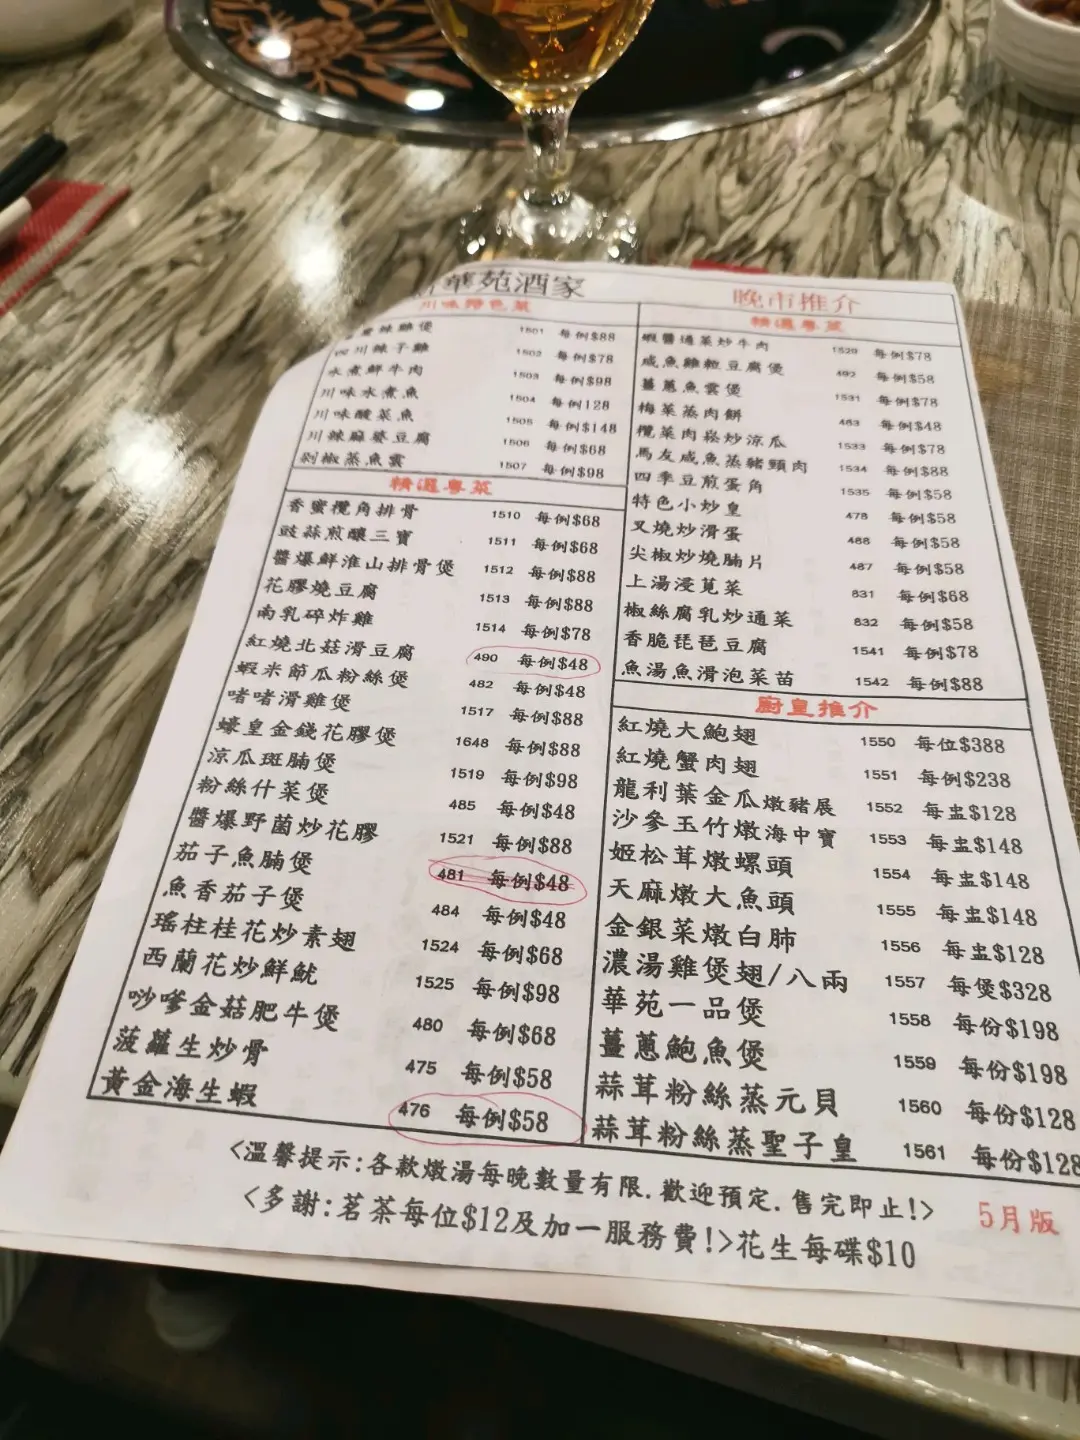 華苑酒家
川味特色菜
辣雞煲 1501 每例$88
四川辣子雞 1502 每例$78
水煮鮮牛肉 1503 每例$98
川味水煮魚 1504 每例128
川味酸菜魚 1505 每例$148
川辣麻婆豆腐 1506 每例$68
剁椒蒸魚雲 1507 每例$98
精選粵菜
香蜜欖角排骨 1510 每例$68
豉蒜煎釀三寶 1511 每例$68
醬爆鮮淮山排骨煲 1512 每例$88
花膠燒豆腐 1513 每例$88
南乳碎炸雞 1514 每例$78
紅燒北菇滑豆腐 490 每例$48
蝦米節瓜粉絲煲 482 每例$48
啫啫滑雞煲 1517 每例$88
蠔皇金錢花膠煲 1648 每例$88
涼瓜斑腩煲 1519 每例$98
粉絲什菜煲 485 每例$48
醬爆野菌炒花膠 1521 每例$88
茄子魚腩煲 481 每例$48
魚香茄子煲 484 每例$48
瑤柱桂花炒素翅 1524 每例$68
西蘭花炒鮮魷 1525 每例$98
吵嗲金菇肥牛煲 480 每例$68
菠蘿生炒骨 475 每例$58
黃金海生蝦 476 每例$58
晚市推介
精選粵菜
蝦醬通菜炒牛肉 1529 每例$78
咸魚雞粒豆腐煲 492 每例$58
薑蔥魚雲煲 1531 每例$78
梅菜蒸肉餅 483 每例$48
欖菜肉崧炒涼瓜 1533 每例$78
馬友咸魚蒸豬頸肉 1534 每例$88
四季豆煎蛋角 1535 每例$58
特色小炒皇 478 每例$58
叉燒炒滑蛋 488 每例$58
尖椒炒燒腩片 487 每例$58
上湯浸莧菜 831 每例$68
椒絲腐乳炒通菜 832 每例$58
香脆琵琶豆腐 1541 每例$78
魚湯魚滑泡菜苗 1542 每例$88
廚皇推介
紅燒大鮑翅 1550 每位$388
紅燒蟹肉翅 1551 每例$238
龍利葉金瓜燉豬展 1552 每盅$128
沙參玉竹燉海中寶 1553 每盅$148
姬松茸燉螺頭 1554 每盅$148
天麻燉大魚頭 1555 每盅$148
金銀菜燉白肺 1556 每盅$128
濃湯雞煲翅/八兩 1557 每煲$328
華苑一品煲 1558 每份$198
薑蔥鮑魚煲 1559 每份$198
蒜茸粉絲蒸元貝 1560 每份$128
蒜茸粉絲蒸聖子皇 1561 每份$128
<溫馨提示:各款燉湯每晚數量有限.歡迎預定.售完即止!>
5月版
<多謝:茗茶每位$12及加一服務費!>花生每碟$10